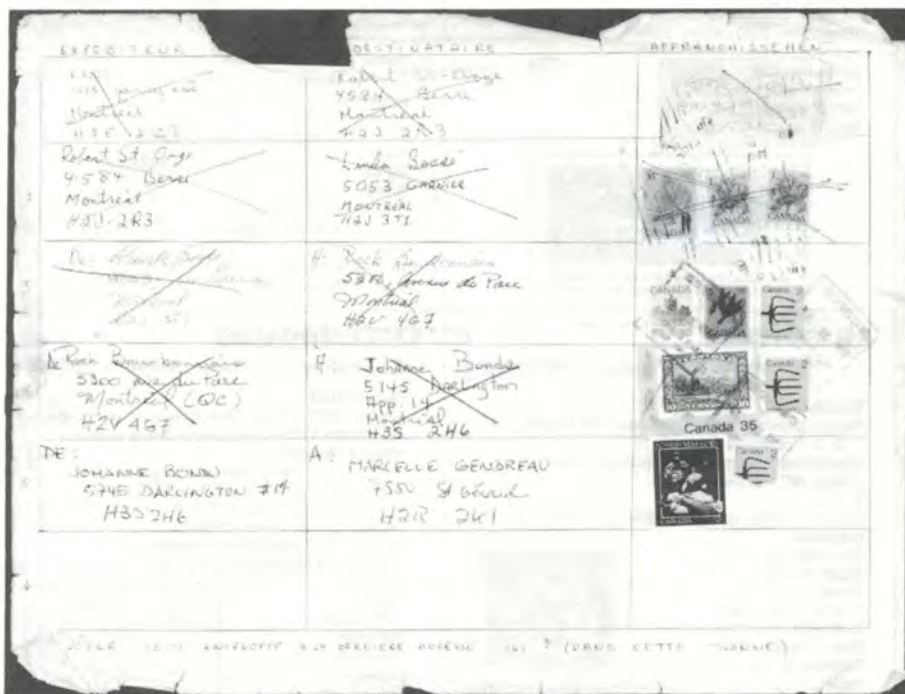 EXPEDITEUR DESTINATAIRE AFFRANCHISSEMEN
Montréal
Robert St-Onge
4584 Berri
Montréal
H2J 2R3
Robert St-Onge
4584 Berri
Montréal
H2J-2R3
Linda Bossé
5053 GARNIER
MONTRÉAL
H2J 3T1
CANADA
CANADA
De:
À: Roch Bourbonnais
5300, avenue du Parc
Montréal
H2V 4G7
CANADA
CANADA
Canada 2
De Roch Bourbonnais
5300 ave du Parc
Montréal (QC)
H2V 4G7
À: Johanne Bonin
5745 Darlington
App. 14
Montréal
H3S 2H6
Canada 2
Canada 35
DE:
JOHANNE BONIN
5745 DARLINGTON #14
H3S 2H6
A:
MARCELLE GENDREAU
7550 St Gérard
H2R 2K1
CANADA
Canada 2
CETTE ENVELOPPE À LA DERNIÈRE ADRESSE ICI ↑ (DANS CETTE COLONNE)